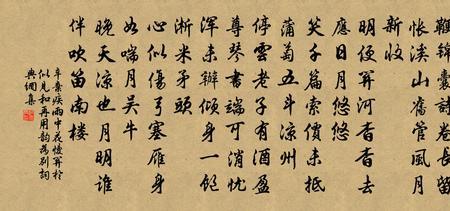 鞭錦囊詩卷長留
悵溪山舊管風月
新收
明便關河杳杳去
應日月悠悠
笑千篇索價未抵
蒲萄五斗涼州
停雲老子有酒盈
尊琴書端可消忧
渾未辦傾身一飽
淅米矛頭
心似傷弓塞雁身
如喘月吴牛
晚天涼也月明誰
伴吹笛南樓
辛棄疾雨中花慢吴子
似見和再用韻為別詞
典網集